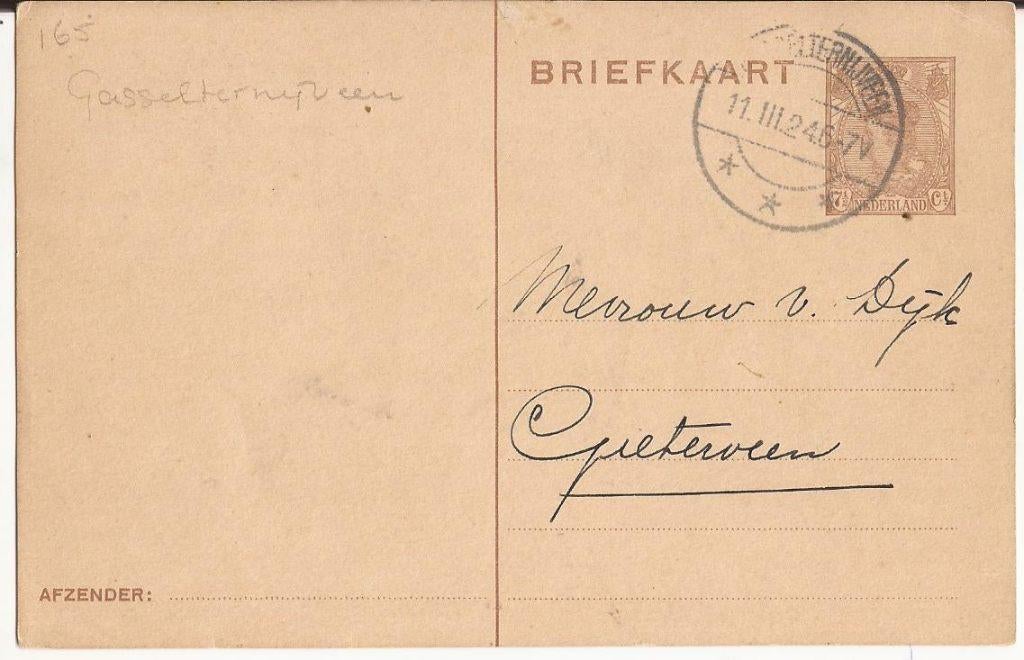 165
Gasselternyveen
BRIEFKAART
11.III.24 6-7V
7½ NEDERLAND Ct
Mevrouw v. Dijk
Gieterveen
AFZENDER: